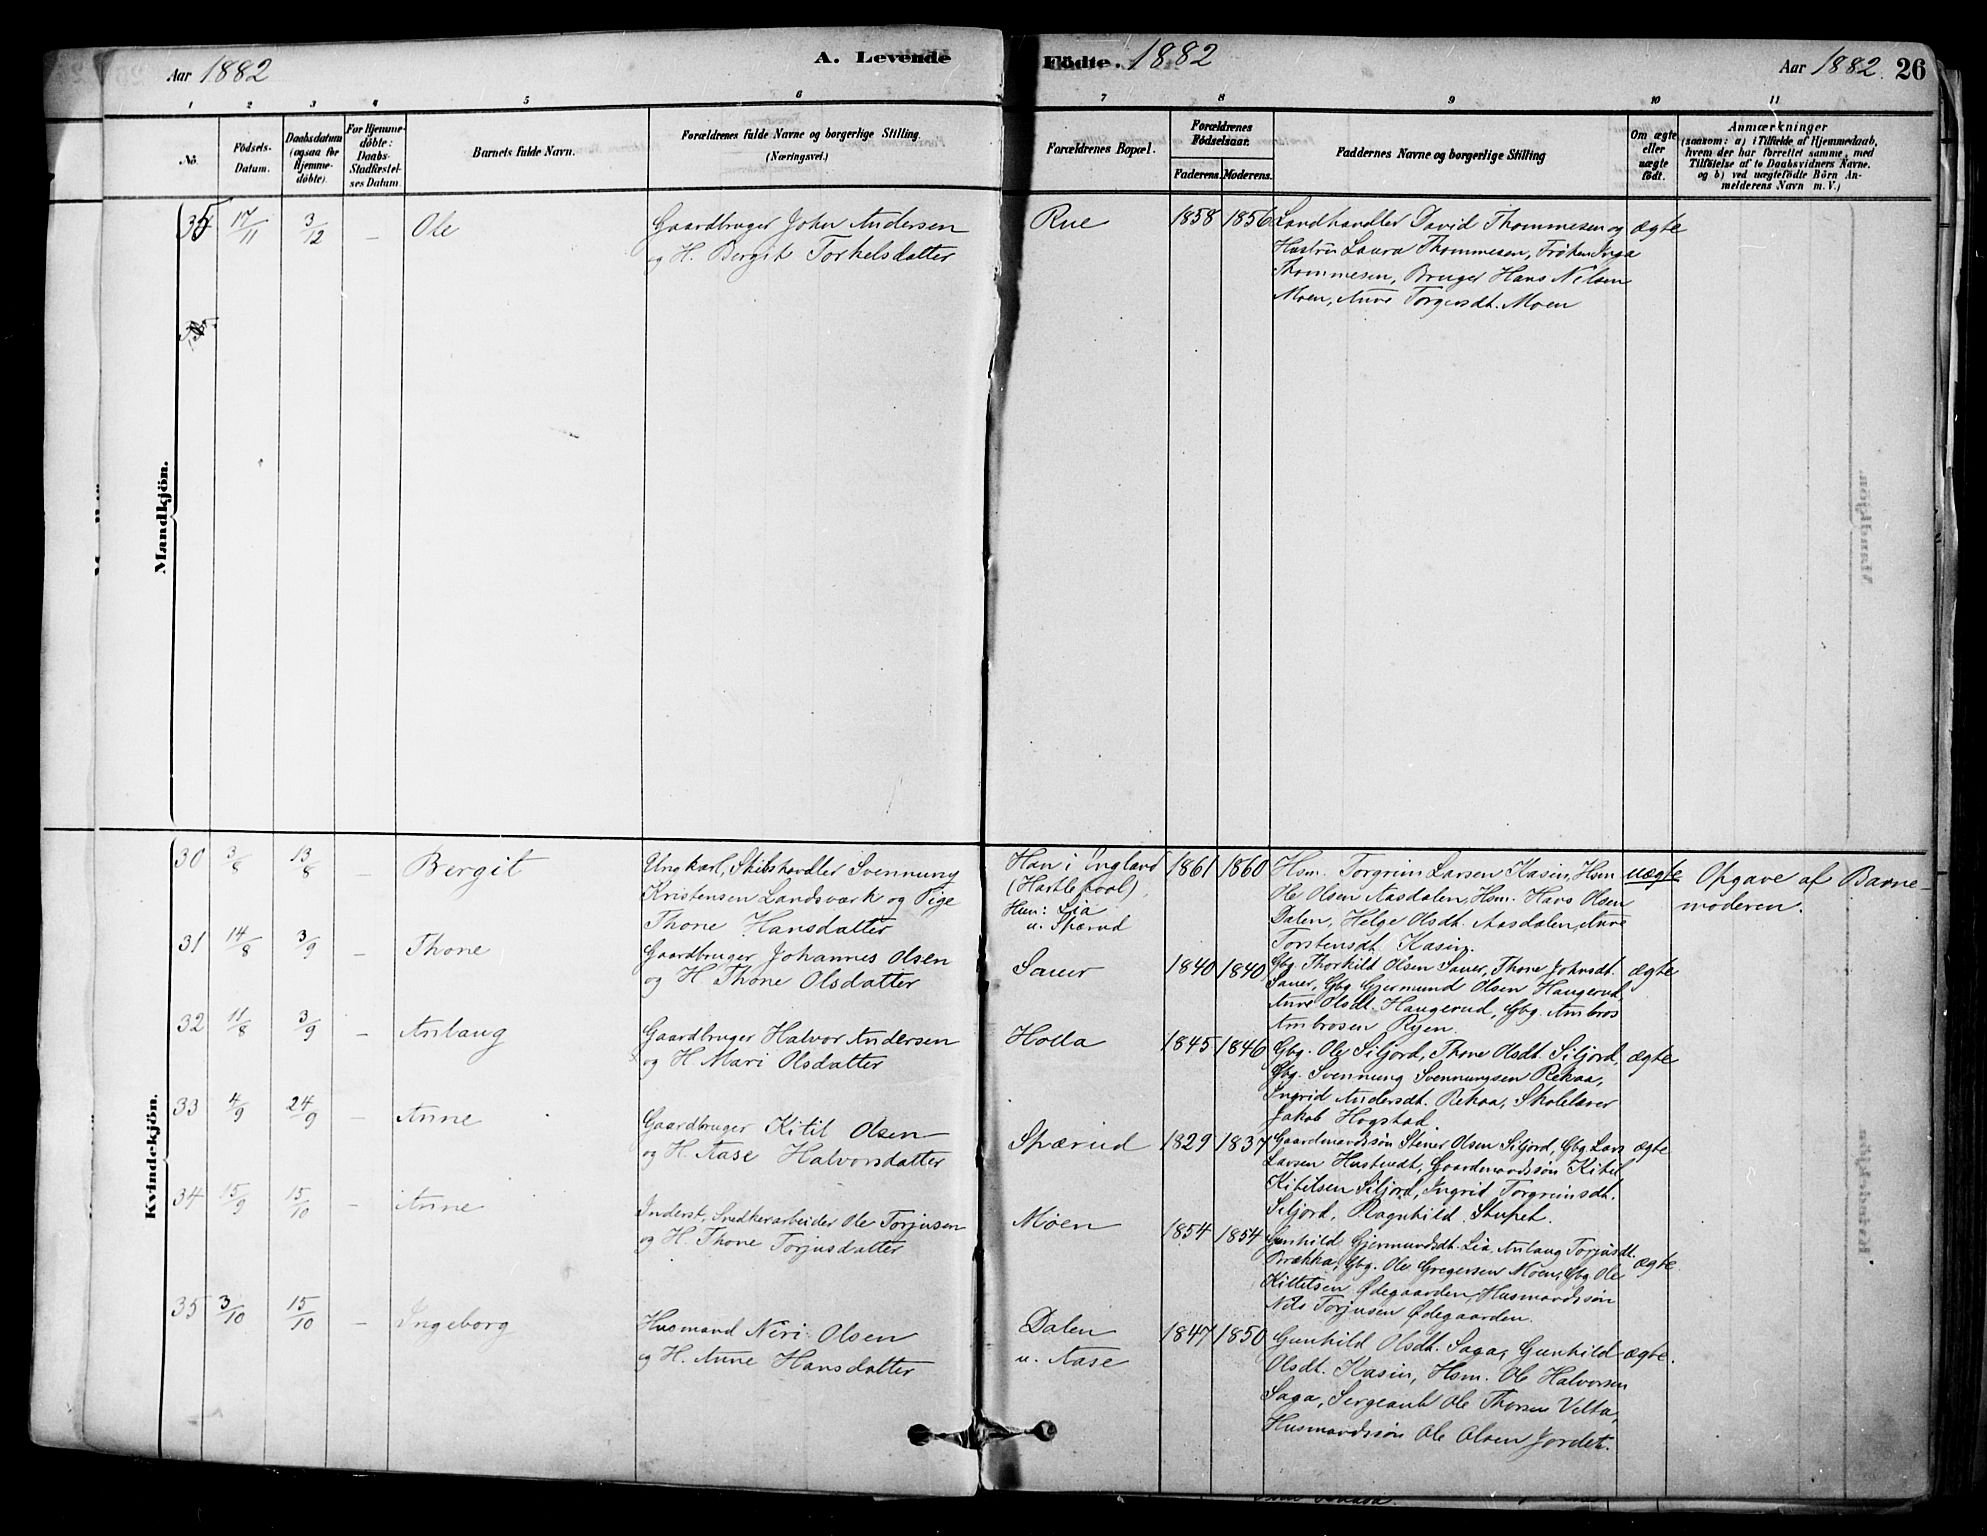 Aar 1882
A. Levende
Födte. 1882
Aar 1882. 26
1 2 3 4 5 6 7 8 9 10 11
No.
Födsels-
Datum.
Daabsdatum
(ogsaa for
Hjemme-
döbte).
For Hjemme-
döbte:
Daabs-
Stadfæstel-
ses Datum.
Barnets fulde Navn.
Forældrenes fulde Navne og borgerlige Stilling.
(Næringsvei.)
Forældrenes Bopæl.
Forældrenes
Födselsaar.
Faderens. Moderens.
Faddernes Navne og borgerlige Stilling
Om ægte
eller
uægte
födt.
Anmærkninger
(saasom: a) i Tilfælde af Hjemmedaab,
hvem der har forrettet samme, med
Tilföielse af to Daabsvidners Navne.
og b) ved uægtefödte Börn An-
melderens Navn m. V.)
Mandkjön.
35 17/11 3/12 - Ole
Gaardbruger John Andersen
og H. Bergit Torkelsdatter
Rue
1858 1856
Landhandler David Thommesen og
Hustru Laura Thommesen, Frøken Inga
Thommesen, Bruger Hans Nilsen
Moen, Anne Torgersdt. Moen
ægte
Kvindekjön.
30 3/8 13/8 - Bergit
Ungkarl, Skibshandler Svennung
Kristensen Landsværk og Pige
Thone Hansdatter
Han i England
(Hartlepool),
Hun: Lia
u. Spærud
1861 1860
Hsm. Torgrim Larsen Kasin, Hsm
Ole Olsen Aasdalen, Hsm. Hans Olsen
Dalen, Helge Olsdt. Aasdalen, Anne
Torstensdt. Kasin.
uægte
Opgave af Barne-
moderen.
31 14/8 3/9 - Thone
Gaardbruger Johannes Olsen
og H. Thone Olsdatter
Sauer
1840 1840
Gbg. Thorkild Olsen Sauer, Thone Johnsdt.
Sauer, Gbg Gjermund Olsen Haugerud,
Anne Olsdt. Haugerud, Gbg. Ambros
Ambrosen Ryen.
ægte
32 11/8 3/9 - Anlaug
Gaardbruger Halvor Andersen
og H. Mari Olsdatter
Holla
1845 1846
Gbg. Ole Siljord, Thone Olsdt. Siljord,
Gbg. Svennung Svennungsen Rekaa,
Ingrid Andersdt. Rekaa, Skolelærer
Jakob Hogstad
ægte
33 4/9 24/9 - Anne
Gaardbruger Kitil Olsen
og H. Aase Halvorsdatter
Spærud
1829 1837
Gaardmandssøn Stener Olsen Siljord, Gbg Lars
Larsen Hustvedt, Gaardmandssøn Kitil
Kitilsen Siljord, Ingrid Torgrimsdt.
Siljord, Ragnhild Stupet.
ægte
34 15/9 15/10 - Anne
Inderst, Snedkerarbeider Ole Torjusen
og H. Thone Torjusdatter
Moen
1854 1854
Gunhild Gjermundsdt. Lia, Anlaug Torjusdt.
Brækka, Gbg. Ole Gregersen Moen, Gbg Ole
Kittilsen Ødegaarden, Husmandssøn
Nils Torjusen Ødegaarden.
ægte
35 3/10 15/10 - Ingeborg
Husmand Neri Olsen
og H. Anne Hansdatter
Dalen
u. Aase
1847 1850
Gunhild Olsdt. Saga, Gunhild
Olsdt. Kasin, Hsm. Ole Halvorsen
Saga, Sergeant Ole Thorsen Velta,
Husmandssøn Ole Olsen Jordet.
ægte.